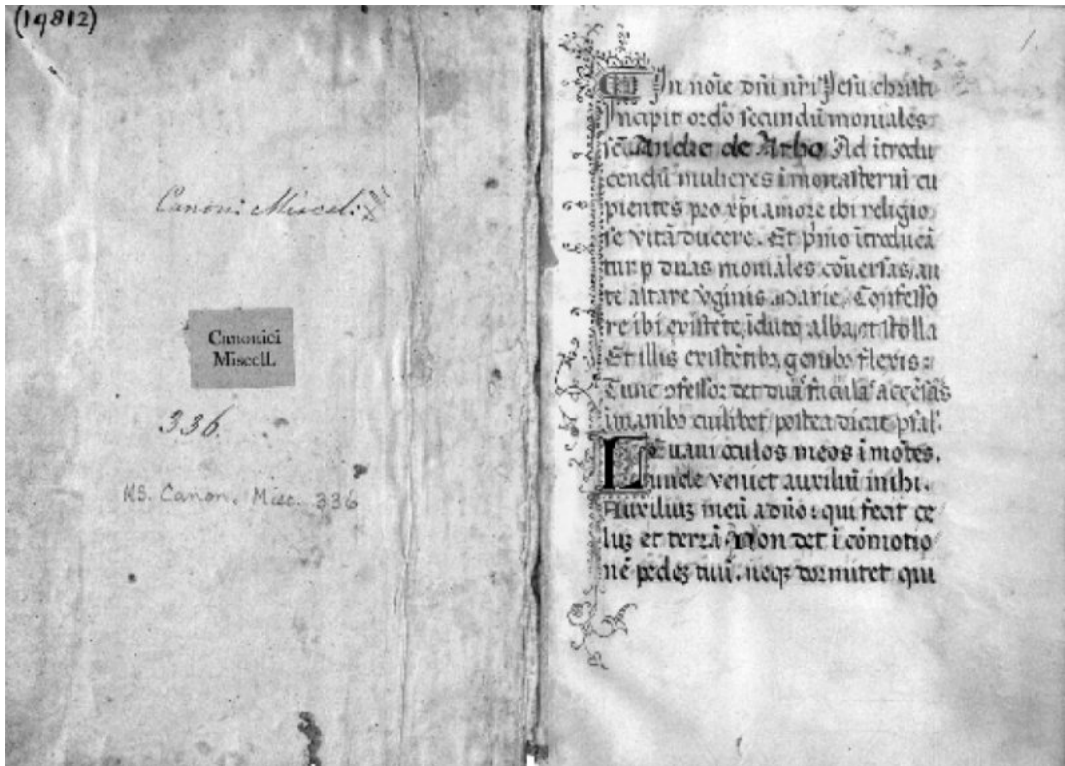 (19812)
Canoni Miscel.
Canonici
Miscell.
336.
MS. Canon. Misc. 336
1.
In noīe dn̄i nr̄i Jesu christi
Incipit ordo secundū moniales
Andree de Arbo. Ad ītrodu
cendū mulieres ī monasteriū cu
pientes pro xp̄i amore ibi religio
se vitā ducere. Et pīno ītroducā
tur p duas moniales cōuersas, an
te altare v̄ginis marie, Confesso
re ibi existēte, īduto alba, et stolla
Et illis existētibꝫ, genibꝫ flexis:
Tunc ꝯfessor det duas faculas accēsas
ī manibꝫ cuilibet postea dicat psal.
Leuaui oculos meos ī mōtes.
vnde veniet auxiliū mihi.
Auxiliuꝫ meū a dn̄o: qui fecit ce
luꝫ et terrā. Non det ī cōmotio
nē pedeꝫ tuū. neqꝫ dormitet qui